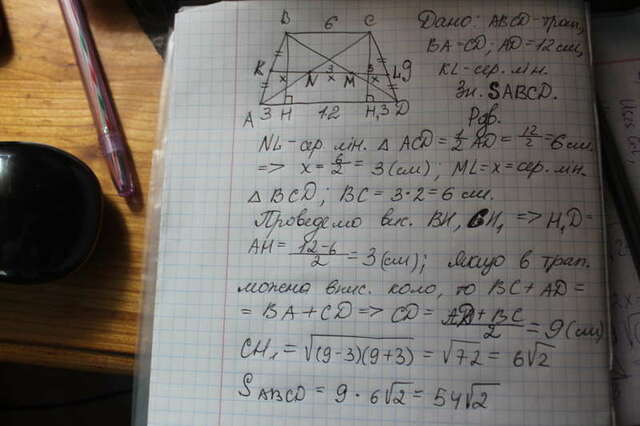 B 6 C
Дано: ABCD-трап,
BA=CD; AD=12 см,
K x N x M x L 9
KL-сер. лін.
Зн. SABCD.
A 3 H 12 H₁ 3 D
Рдв.
NL-сер лін. △ ACD = 1/2 AD = 12/2 = 6 см.
=> x = 6/2 = 3 (см); ML = x = сер. лін.
△ BCD; BC = 3·2 = 6 см.
Проведемо вис. BH, CH₁ => H₁D =
AH = (12-6)/2 = 3 (см); якщо в трап.
можна впис. коло, то BC + AD =
= BA + CD => CD = (AD + BC)/2 = 9 (см)
CH₁ = √(9-3)(9+3) = √72 = 6√2
SABCD = 9 · 6√2 = 54√2